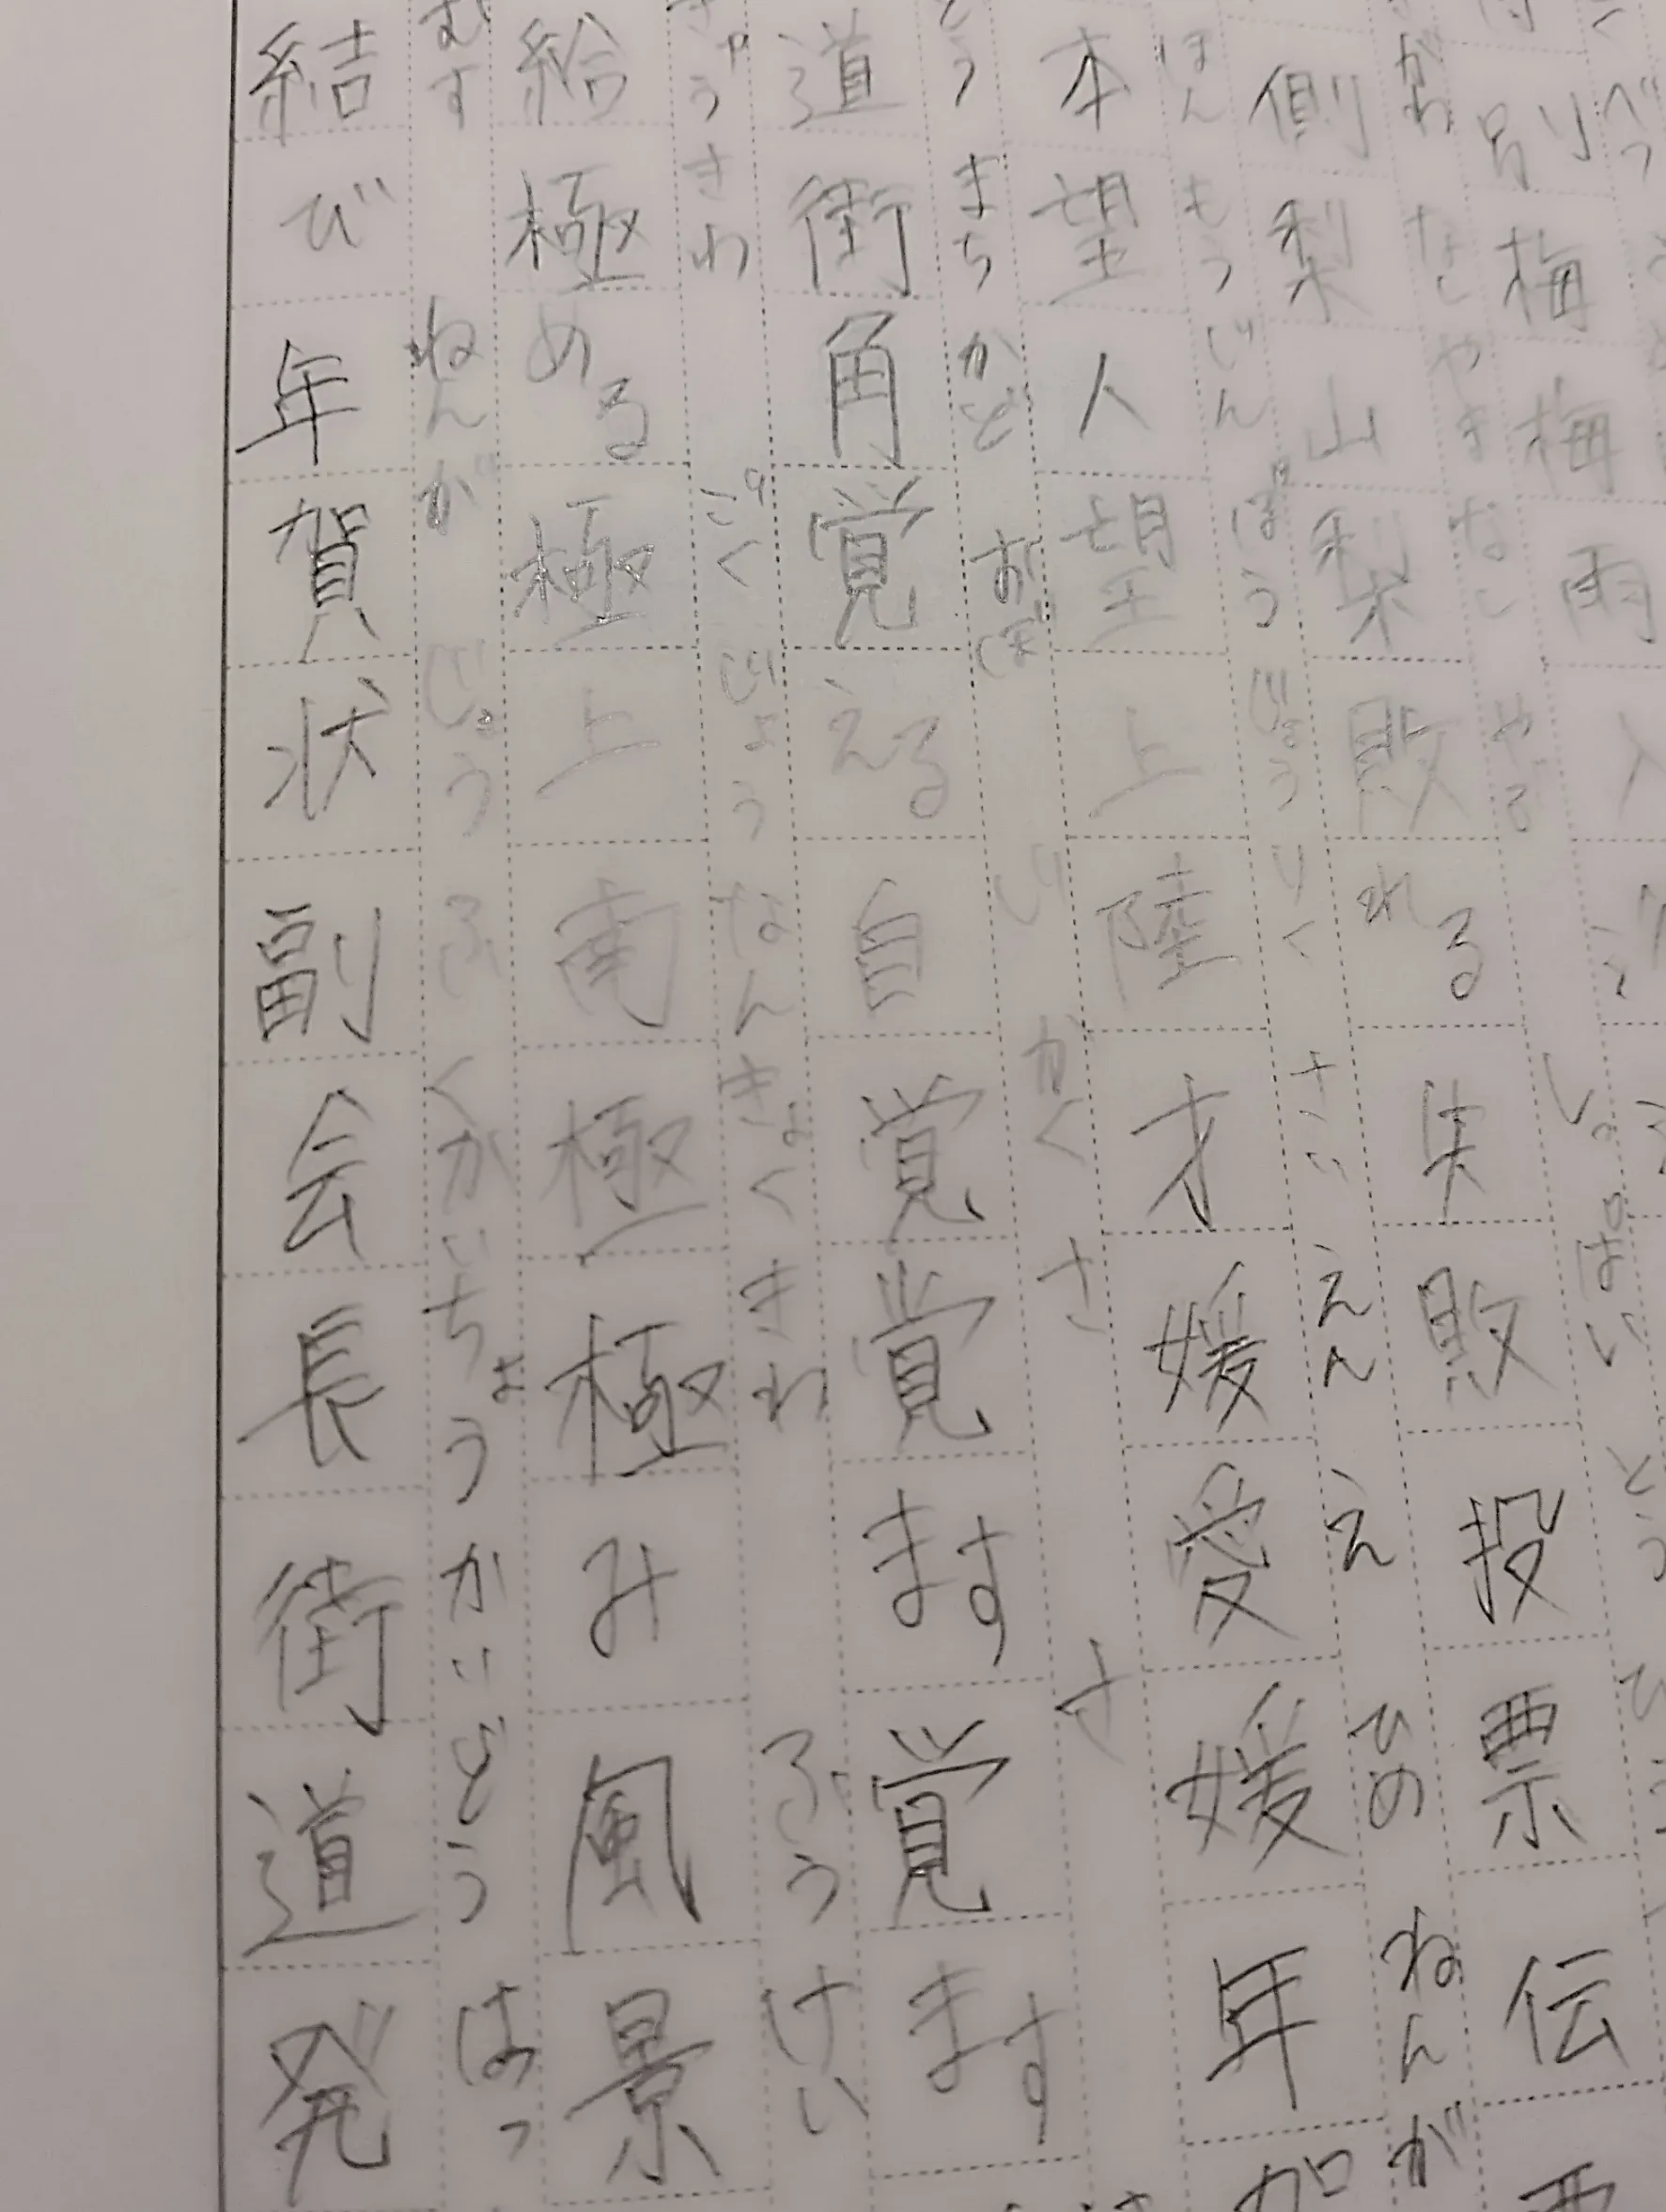 別梅梅雨入
がわ なし やま なし やぶ しっぱい とう
側梨山梨敗れる失敗投票伝
ほん もう じん ぼう じょう りく さい えん え ひめ ねん が
本望人望上陸才媛愛媛年賀
まち かど おぼ じ かく さ さ
道街角覚える自覚覚ます覚ます
きゅう きわ ごく じょう なん きょく きわ ふう けい
給極める極上南極極み風景
むす ねん が じょう ふく かい ちょう かい どう はっ
結び年賀状副会長街道発